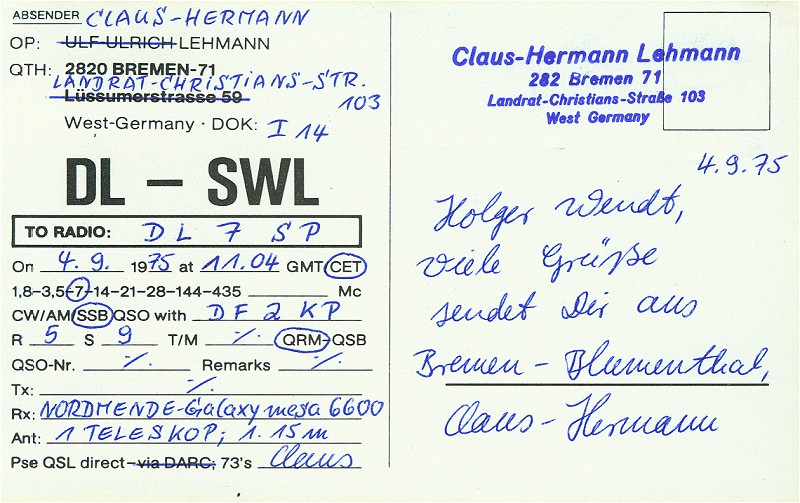 ABSENDER CLAUS-HERMANN
OP: ULF-ULRICH LEHMANN
QTH: 2820 BREMEN-71
LANDRAT-CHRISTIANS-STR.
Lüssumerstrasse 59
103
West-Germany · DOK: I 14
DL – SWL
TO RADIO: DL 7 SP
On 4.9. 1975 at 11.04 GMT/CET
1,8-3,5-7-14-21-28-144-435 Mc
CW/AM/SSB QSO with DF2KP
R 5 S 9 T/M ./. QRM-QSB
QSO-Nr. ./. Remarks ./.
Tx: ./.
Rx: NORDMENDE-Galaxy mesa 6600
Ant: 1 TELESKOP; 1.15m
Pse QSL direct-via DARC; 73's Claus
Claus-Hermann Lehmann
282 Bremen 71
Landrat-Christians-Straße 103
West Germany
4.9.75
Holger Wendt,
viele Grüße
sendet Dir aus
Bremen-Blumenthal,
Claus-Hermann